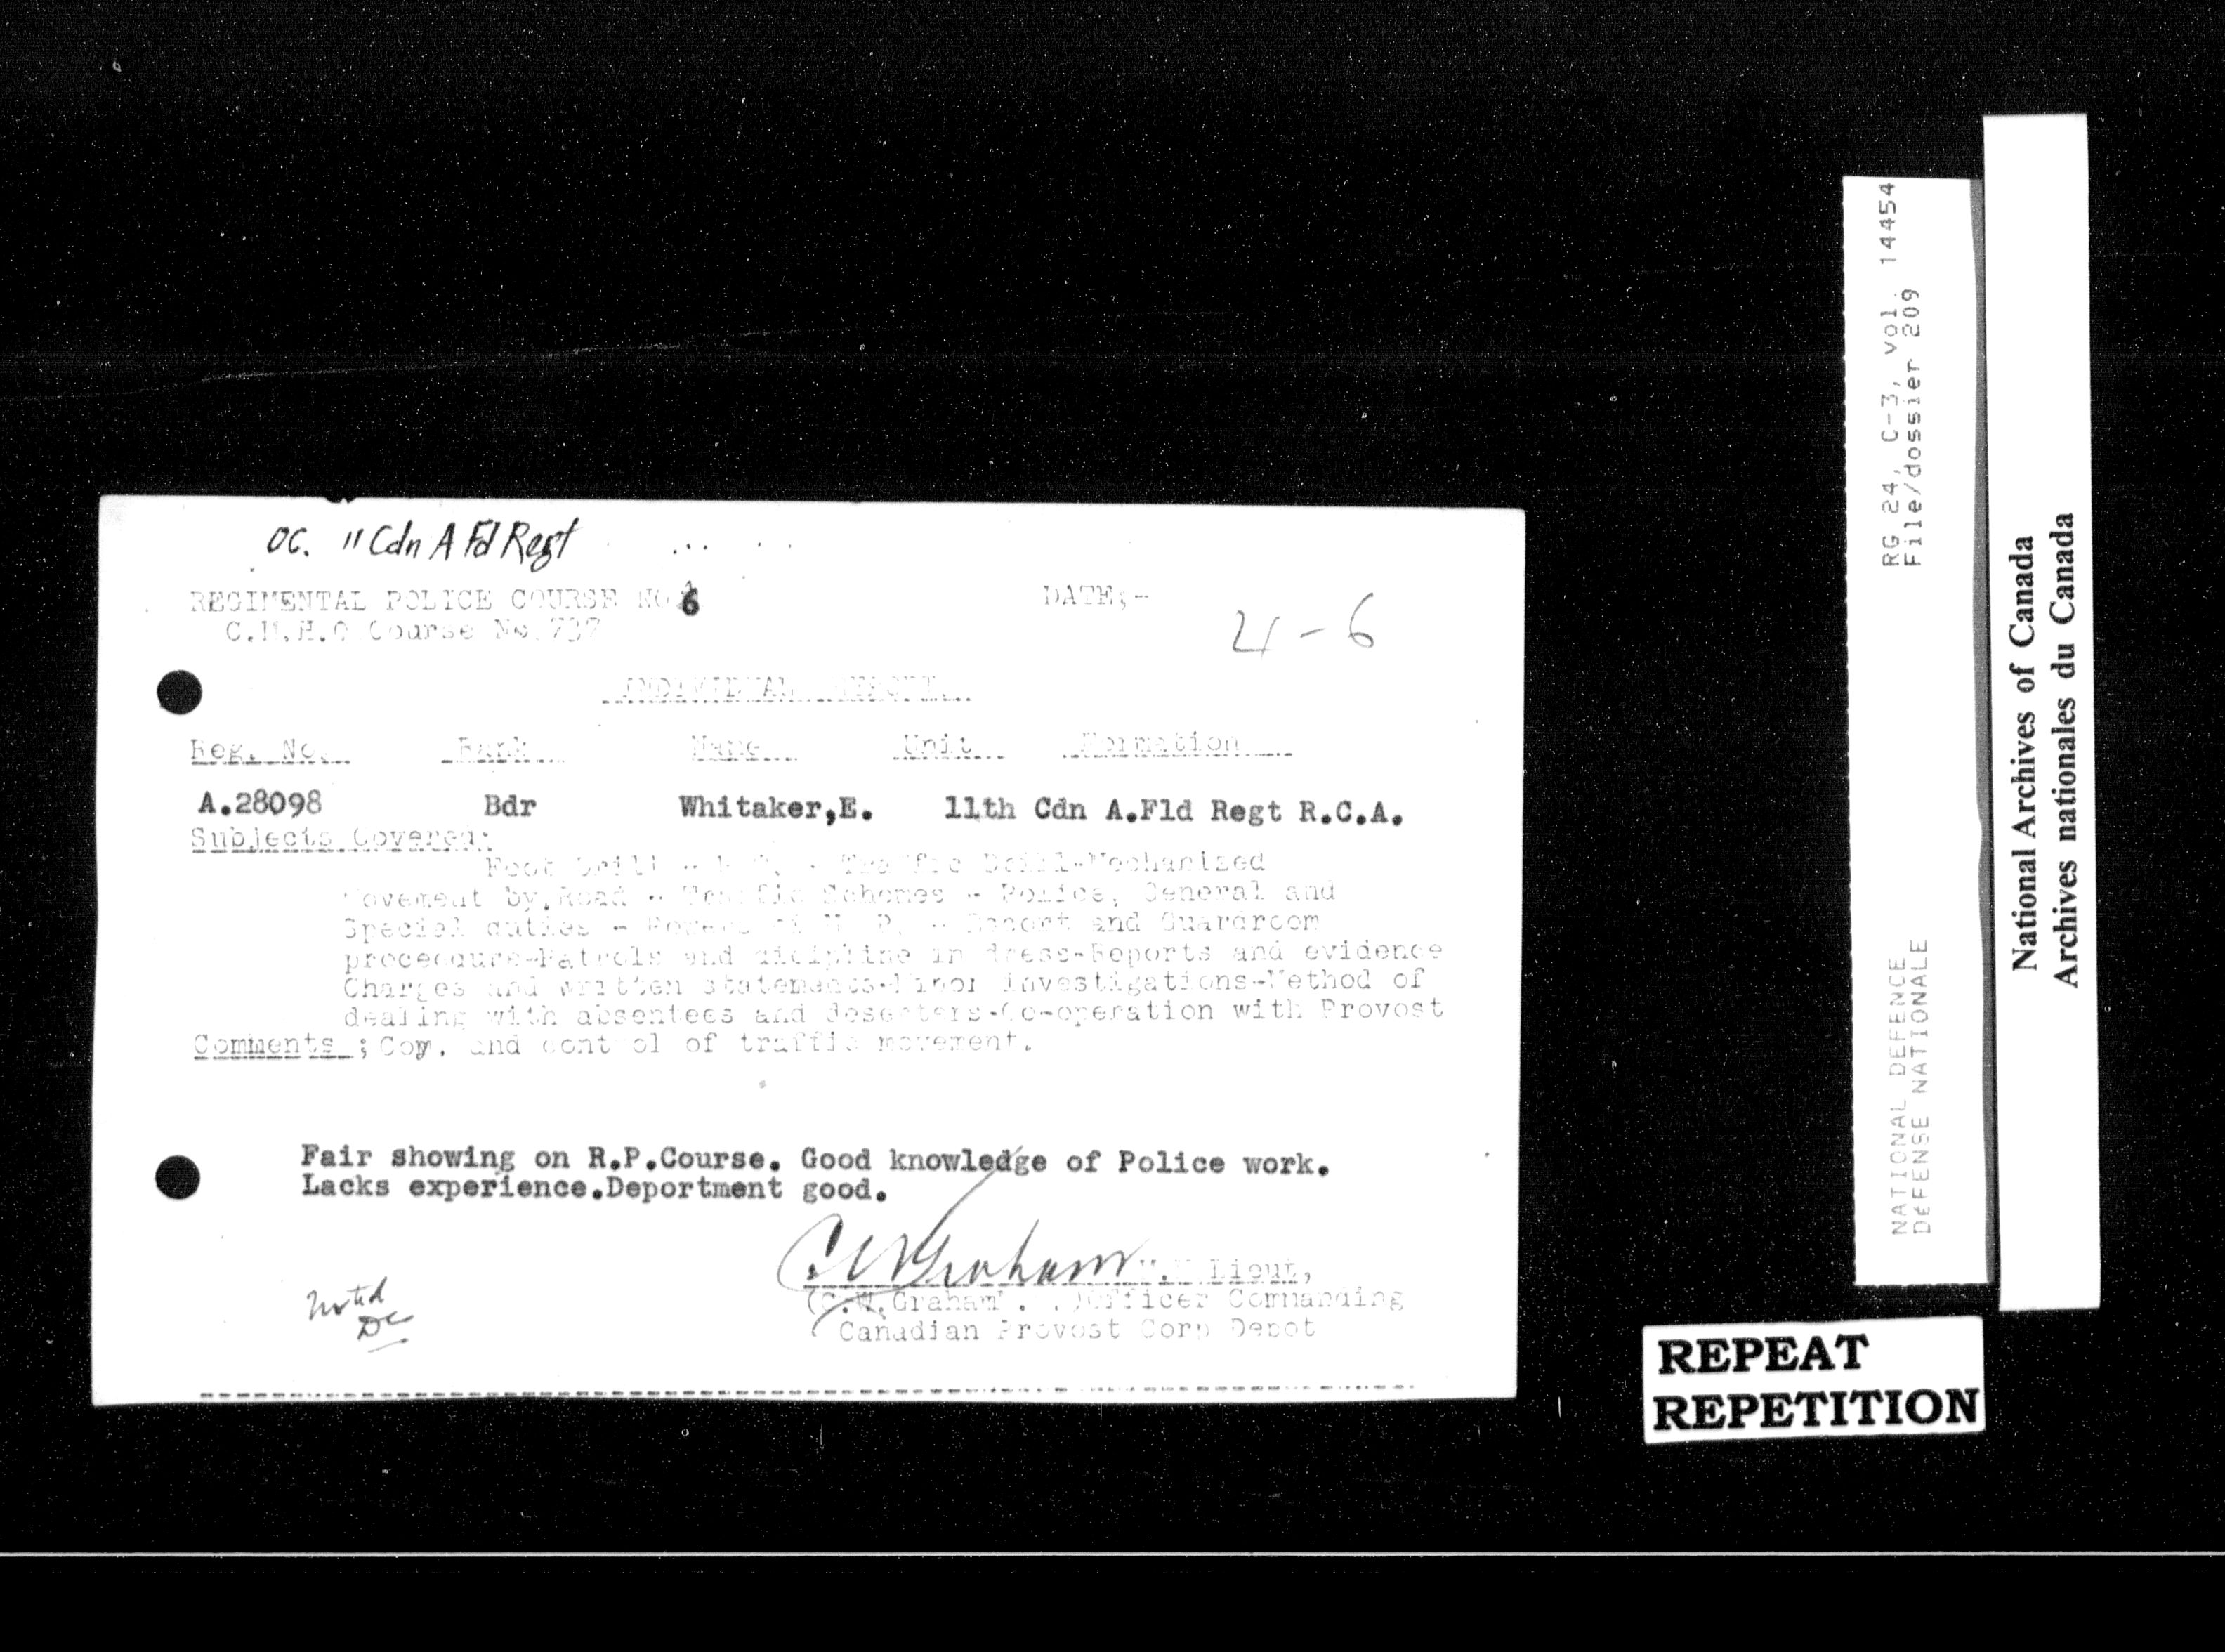 OC. 11 Cdn A Fd Regt
REGIMENTAL POLICE COURSE NO 6
DATE;-
C.M.H.Q Course No. 737
21-6
INDIVIDUAL REPORT
Reg. No. Rank Name Unit Formation
A.28098 Bdr Whitaker,E. 11th Cdn A.Fld Regt R.C.A.
Subjects Covered:
Foot Drill - - Traffic Mechanized
Movement by Road - Traffic Schemes - Police, General and
Special duties - Powers of M. P. - Escort and Guardroom
proceedure-Patrols and dicipline in dress-Reports and evidence
Charges and written statements-Minor investigations-Method of
dealing with absentees and deserters-Co-operation with Provost
Comments ; Coy. and control of traffic movement.
Fair showing on R.P.Course. Good knowledge of Police work.
Lacks experience.Deportment good.
C W Graham Lieut,
(C.W.Graham . .)Officer Commanding
Canadian Provost Corp Depot
Noted
DC
RG 24, C-3, vol. 14454
File/dossier 209
NATIONAL DEFENCE
DÉFENSE NATIONALE
National Archives of Canada
Archives nationales du Canada
REPEAT
REPETITION